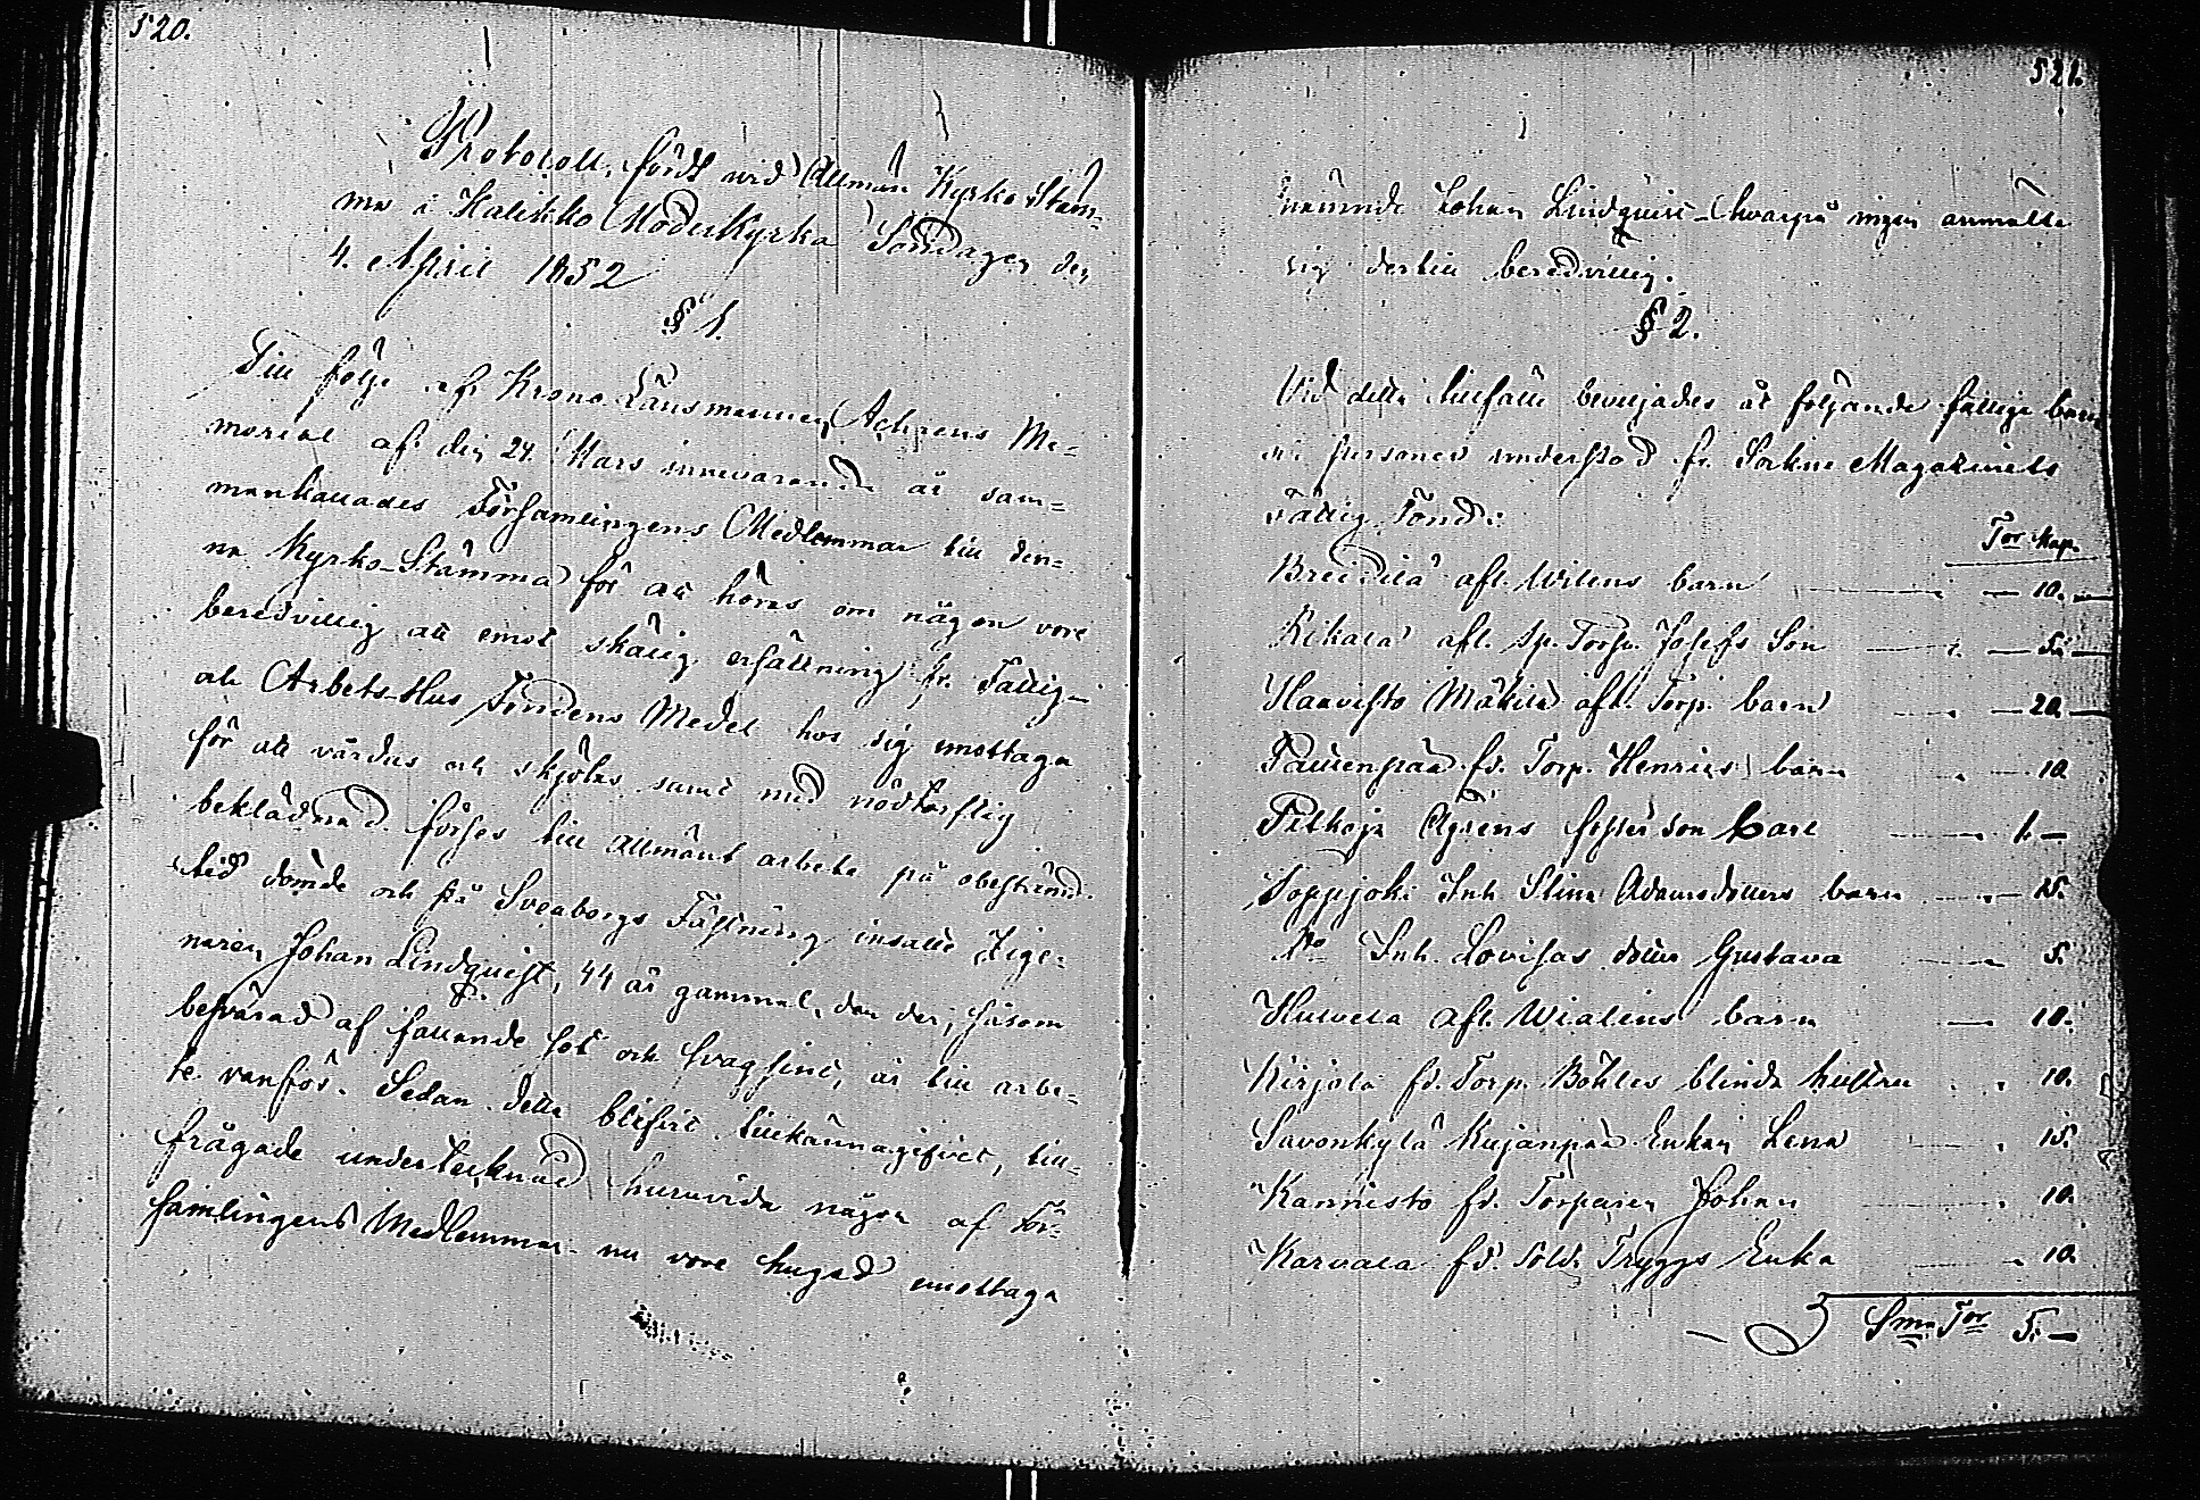 520.
Protocoll, fördt vid Allmän Kyrko Stäm-
ma i Halikko Moderkyrka Söndagen den
4. April 1852
§ 1.
Till följe af Krono Länsmannen Achrens Me-
morial af den 24. Mars innevarande år sam-
mankallades Församlingens Medlemmar till den-
na Kyrko-Stämma för att höras om någon vore
beredvillig att emot skälig ersättning fr. Fattig-
och Arbets-Hus Fondens Medel hos sig emottaga
för att vårdas och skjötas samt med nödtorftig
beklädnad förses till Allmänt arbete på obestämd
tid dömde och på Sveaborgs Fästning insatte Zige-
naren Johan Lindqvist, 44 år gammal, den der, såsom
besvärad af fallande sot och svagsint, är till arbe-
te vanför. Sedan detta blifvit tillkännagifvet, till-
frågade undertecknad huruvida någon af För-
samlingens Medlemmar nu vore hugad emottaga
521.
nämnde Johan Lindqvist - hvarpå ingen anmälte
sig dertill beredvillig.
§ 2.
Vid detta tillfälle beviljades åt följande fattige barn
och personer understöd fr. Sockne Magazinets
Fattig Fond:
Tor Kap.
Breidilä afl. Wilens barn 10.
Rikala afl. Sp. Torp. Josefs Son 5.
Haavisto Mäkilä afl. Torp. barn 20.
fd. Torp. Henrics barn 10
Pitkoja Ågrens fosterson Carl 1. —
Toppjoki Inh. Stina Adamsdotters barn 15.
Do Inh. Lovisas dotter Gustava 5.
afl. Wialins barn 10.
Kirjola fd. Torp. Böhles blinda hustru 10.
Savonkylä Kujanpää Enkan Lena 15.
Kannisto fd. Torparen Johan 10.
Karvala fd. Sold. Tryggs Enka 10.
Sma Tor 5. —